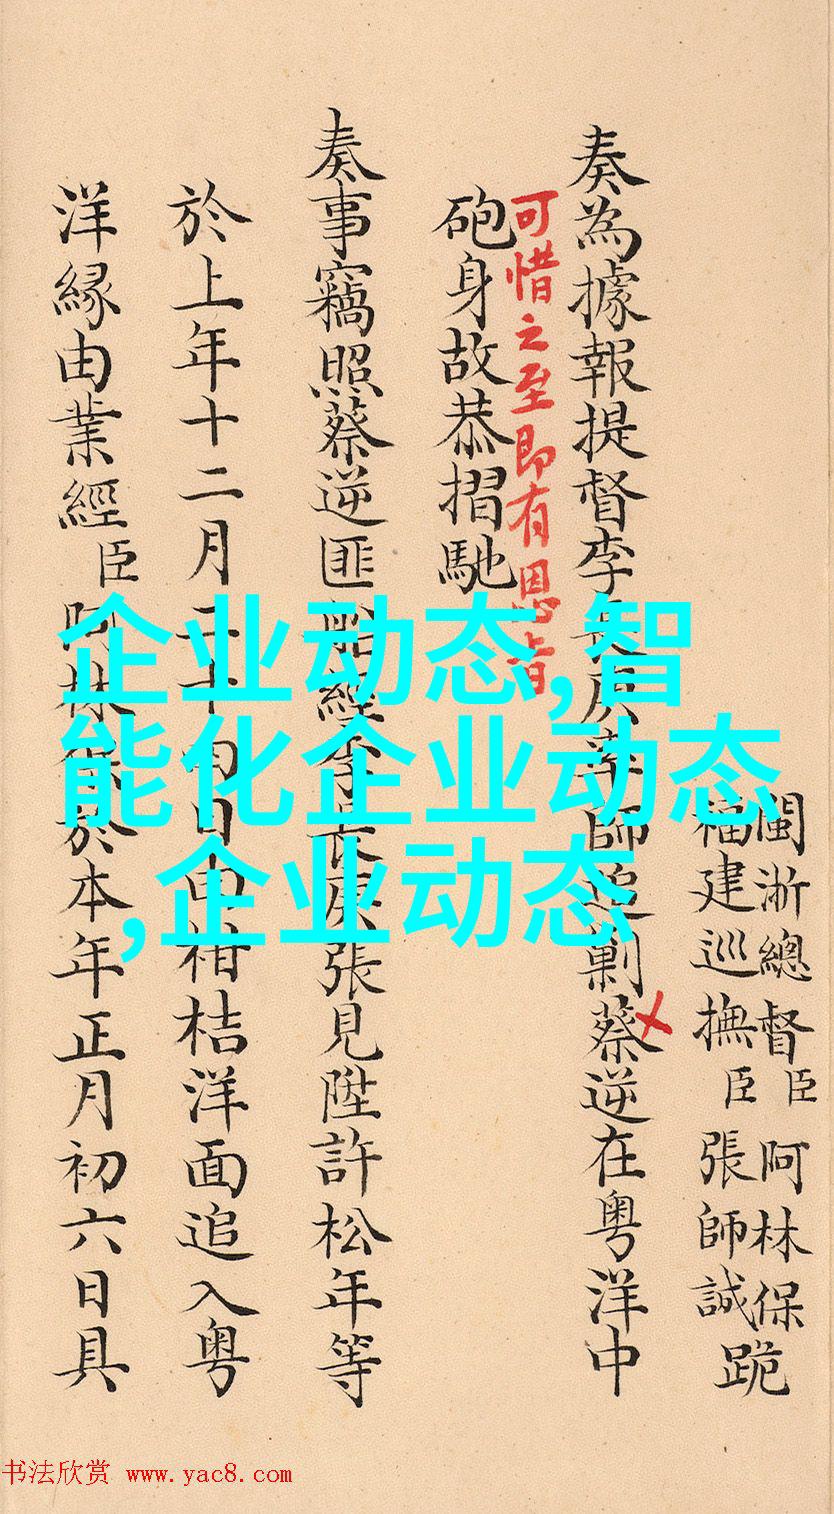 閩浙總督臣阿林保
福建巡撫臣張師誠跪
奏為據報提督李長庚率師追剿蔡逆在粤洋中
可惜之至即有恩旨
砲身故恭摺馳
奏事竊照蔡逆匪船經李長庚張見陞許松年等
於上年十二月二十日由柑桔洋面追入粤
洋緣由業經臣阿林保於本年正月初六日具
企业动态,智
能化企业动态
,企业动态
书法欣赏 www.yac8.com